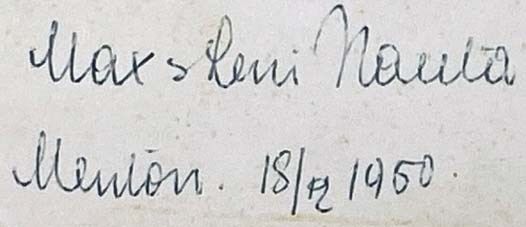 Max & Leni Nauta
Menton. 18/12 1950.